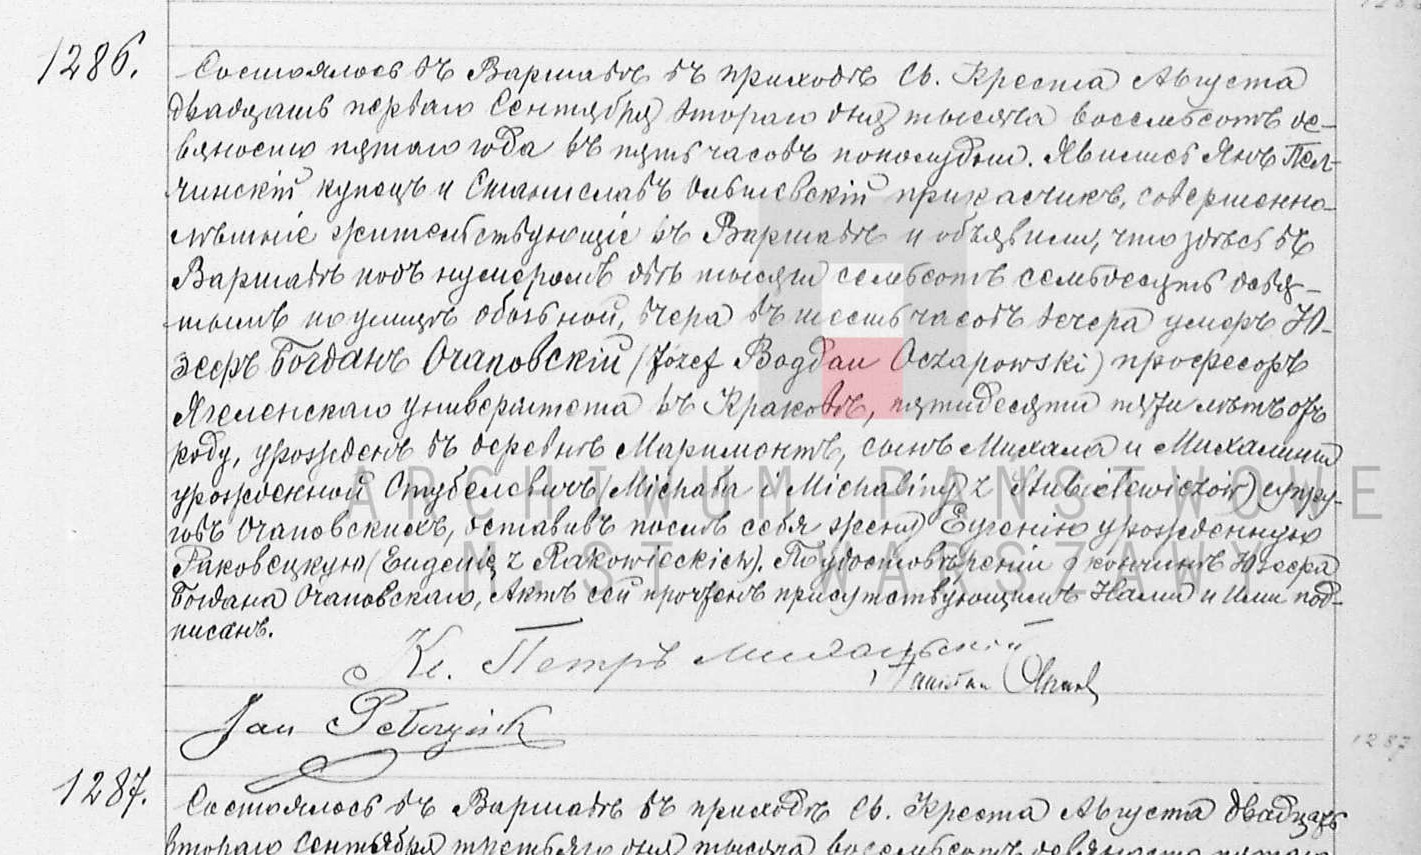 1286.
Состоялось въ Варшавѣ въ приходѣ Св. Креста Августа
двадцать перваго Сентября втораго дня тысяча восемьсотъ де-
вяносто пятаго года въ пять часовъ пополудни. Явились Янъ Пел-
чинскій купецъ и Станиславъ Ольшевскій прикасчикъ, совершенно-
лѣтніе жительствующіе въ Варшавѣ и объявили, что здѣсь въ
Варшавѣ подъ нумеромъ двѣ тысячи семьсотъ семьдесятъ девя-
тымъ по улицѣ Обозьной, вчера въ шесть часовъ вечера умеръ Ю-
зефъ Богданъ Очаповскій (Józef Bogdan Oczapowski) профессоръ
Ягеленскаго университета въ Краковѣ, пятидесяти пяти лѣтъ отъ
роду, урожденъ въ деревнѣ Маримонтъ, сынъ Михала и Михалины
урожденной Стубелевичъ (Michała i Michaliny z Stubielewiczów) супру-
говъ Очаповскихъ, оставивъ послѣ себя жену Евгенію урожденную
Раковецкую (Eugenię z Rakowieckich). По удостовѣреніи о кончинѣ Юзефа
Богдана Очаповскаго, Актъ сей прочтенъ присутствующимъ Нами и Ими под-
писанъ.
ARCHIWUM PAŃSTWOWE
M. ST. WARSZAWY
Кс. Петръ
Jan
1287.
1287
Состоялось въ Варшавѣ въ приходѣ Св. Креста Августа двадцать
втораго Сентября третьяго дня тысяча восемьсотъ девяносто пятаго